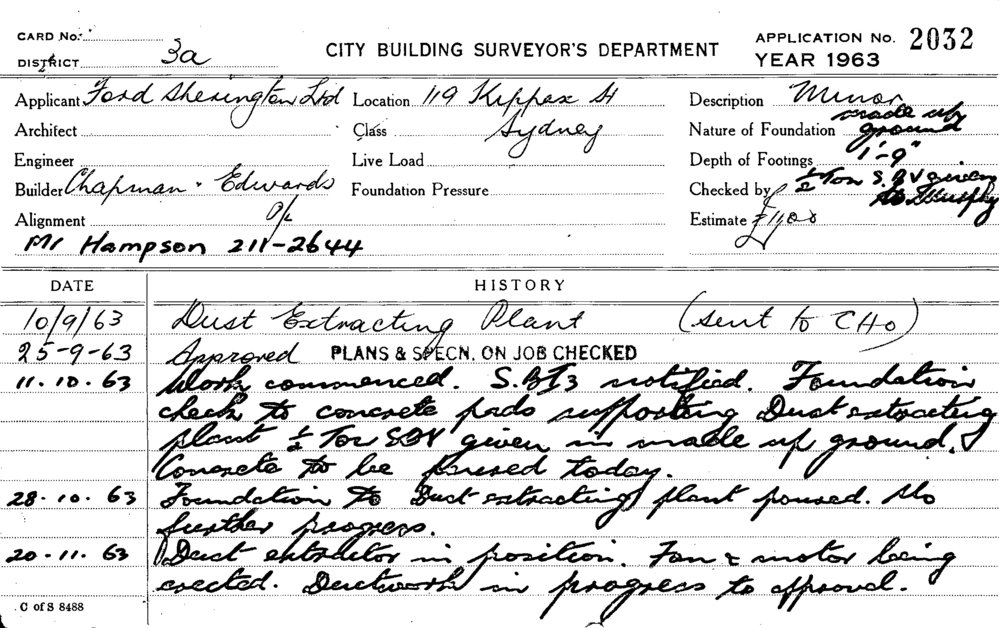 CARD No.
DISTRICT 3a
CITY BUILDING SURVEYOR'S DEPARTMENT
APPLICATION No. 2032
YEAR 1963
Applicant Ford Sherington Ltd
Location 119 Kippax St
Sydney
Description Minor
Architect
Class
Nature of Foundation made up
ground
Engineer
Live Load
Depth of Footings 1'-9"
Builder Chapman · Edwards
P/L
Foundation Pressure
Checked by ½ Ton S.B.V given
to Murphy
Alignment
Estimate
Mr Hampson 211-2644
DATE HISTORY
10/9/63 Dust Extracting Plant (sent to CHO)
25-9-63 Approved PLANS & SPECN. ON JOB CHECKED
11.10.63 Work commenced. S.B I3 notified. Foundation
check to concrete pads supporting Dust extracting
plant ½ Ton SBV given in made up ground.
Concrete to be poured today.
28.10.63 Foundation to Dust extracting plant poured. No
further progress.
20.11.63 Dust extractor in position. Fan & motor being
erected. Ductwork in progress to approval.
C of S 8488